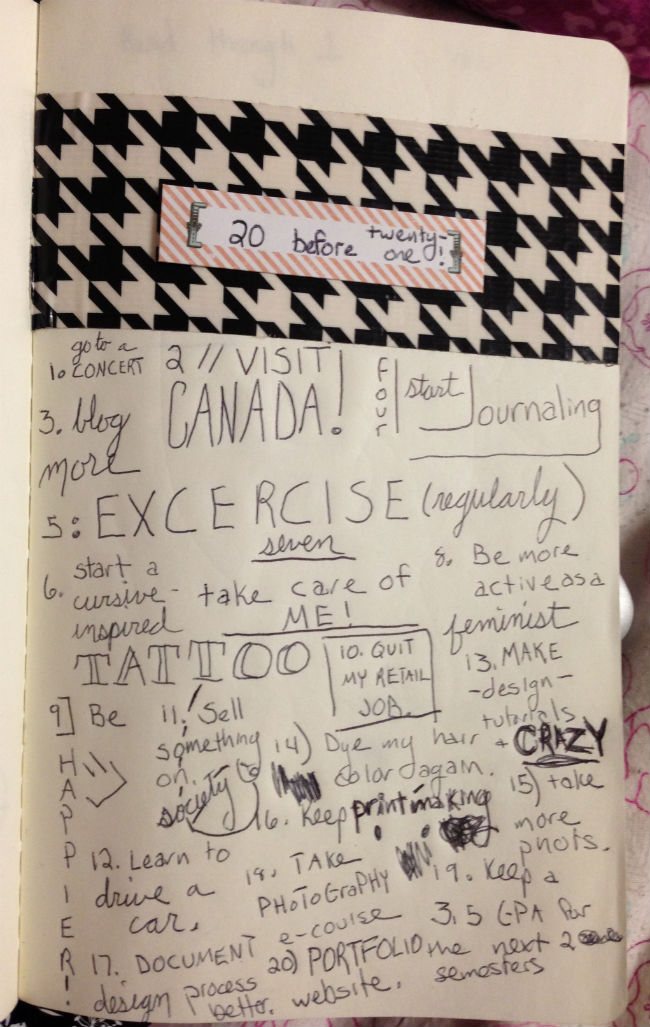 20 before twenty-
one!
1. go to a
CONCERT
2 // VISIT
CANADA!
3. blog
more
four
start
Journaling
5: EXCERCISE (regularly)
6. start a
cursive-
inspired
TATTOO
seven
take care of
ME!
8. Be more
active as a
feminist
9] Be
HAPPIER!
10. QUIT
MY RETAIL
JOB.
11. Sell
something
on
society6
12. Learn to
drive a
car.
13. MAKE
-design-
tutorials
14) Dye my hair a CRAZY
color again.
15) take
more
photos.
16. Keep printmaking!
17. DOCUMENT
design process
better.
18. TAKE
PHOTOGRAPHY
e-course
19. Keep a
3.5 GPA for
the next 2
semesters
20) PORTFOLIO
website.